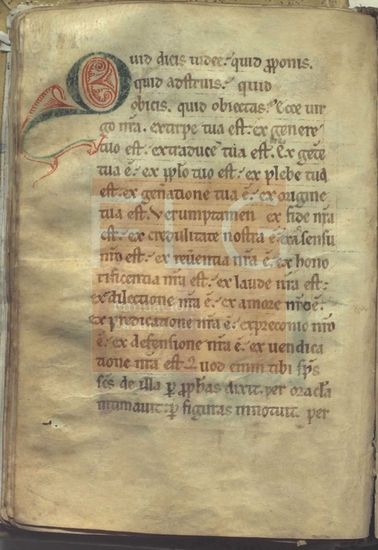 Quid dicis iudee. quid p̄ponis.
quid adstruis. quid
obicis. quid obiectas. Ecce uir
go nr̄a. ex tirpe tua est. ex genere
tuo est. ex traduce tua est. Ex gēte
tua ē. ex pp̄lo tuo est. ex plebe tua
est. ex gen̄atione tua ē. ex origine
tua est. Verumptamen ex fide nr̄a
est. ex credulitate nostra ē. ex sensu
nr̄o est. ex reuerentia nr̄a ē. ex hono
rificentia nr̄a est. ex laude nr̄a est.
ex dilectione nr̄a ē. ex amore nr̄o ē.
ex p̄dicatione nr̄a ē. ex preconio nr̄o
ē. ex defensione nr̄a ē. ex uendica
tione nr̄a est. Quod enim tibi sp̄s
sc̄s de illa p̱ pp̄has dixit. per oracl̄a
intimauit. p̱ figuras innotuit. per